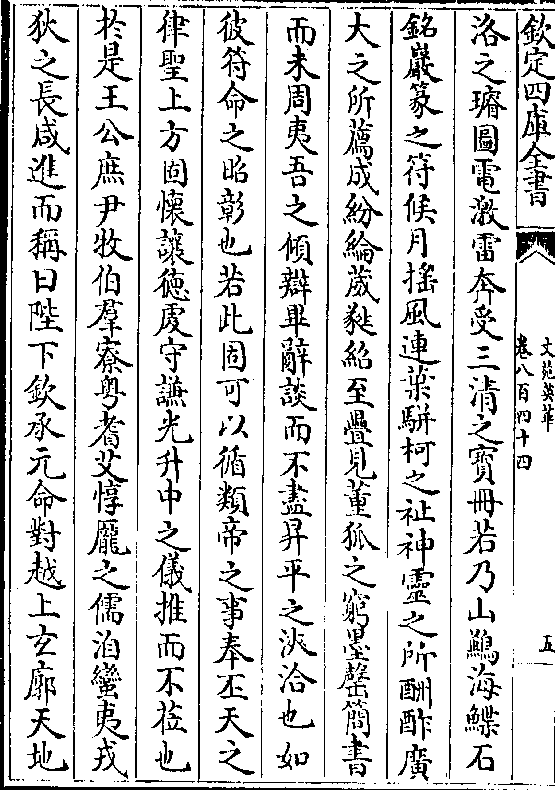 欽定四庫全書
文苑英華
卷八百四十四
五
洛之璿圖電激雷奔受三清之寶冊若乃山鶼海鰈石
銘巖篆之符候月揺風連葉駢柯之祉神靈之所酬酢廣
大之所薦成紛綸葳蕤紹至疊見董狐之窮墨罄簡書
而未周夷吾之傾辯畢辭談而不盡昇平之浹洽也如
彼符命之昭彰也若此固可以循類帝之事奉丕天之
律聖上方固懐讓徳處守謙光升中之儀推而不莅也
於是王公庶尹牧伯羣寮粤耆艾惇龎之儒洎蠻夷戎
狄之長咸進而稱曰陛下欽承元命對越上玄廓天地